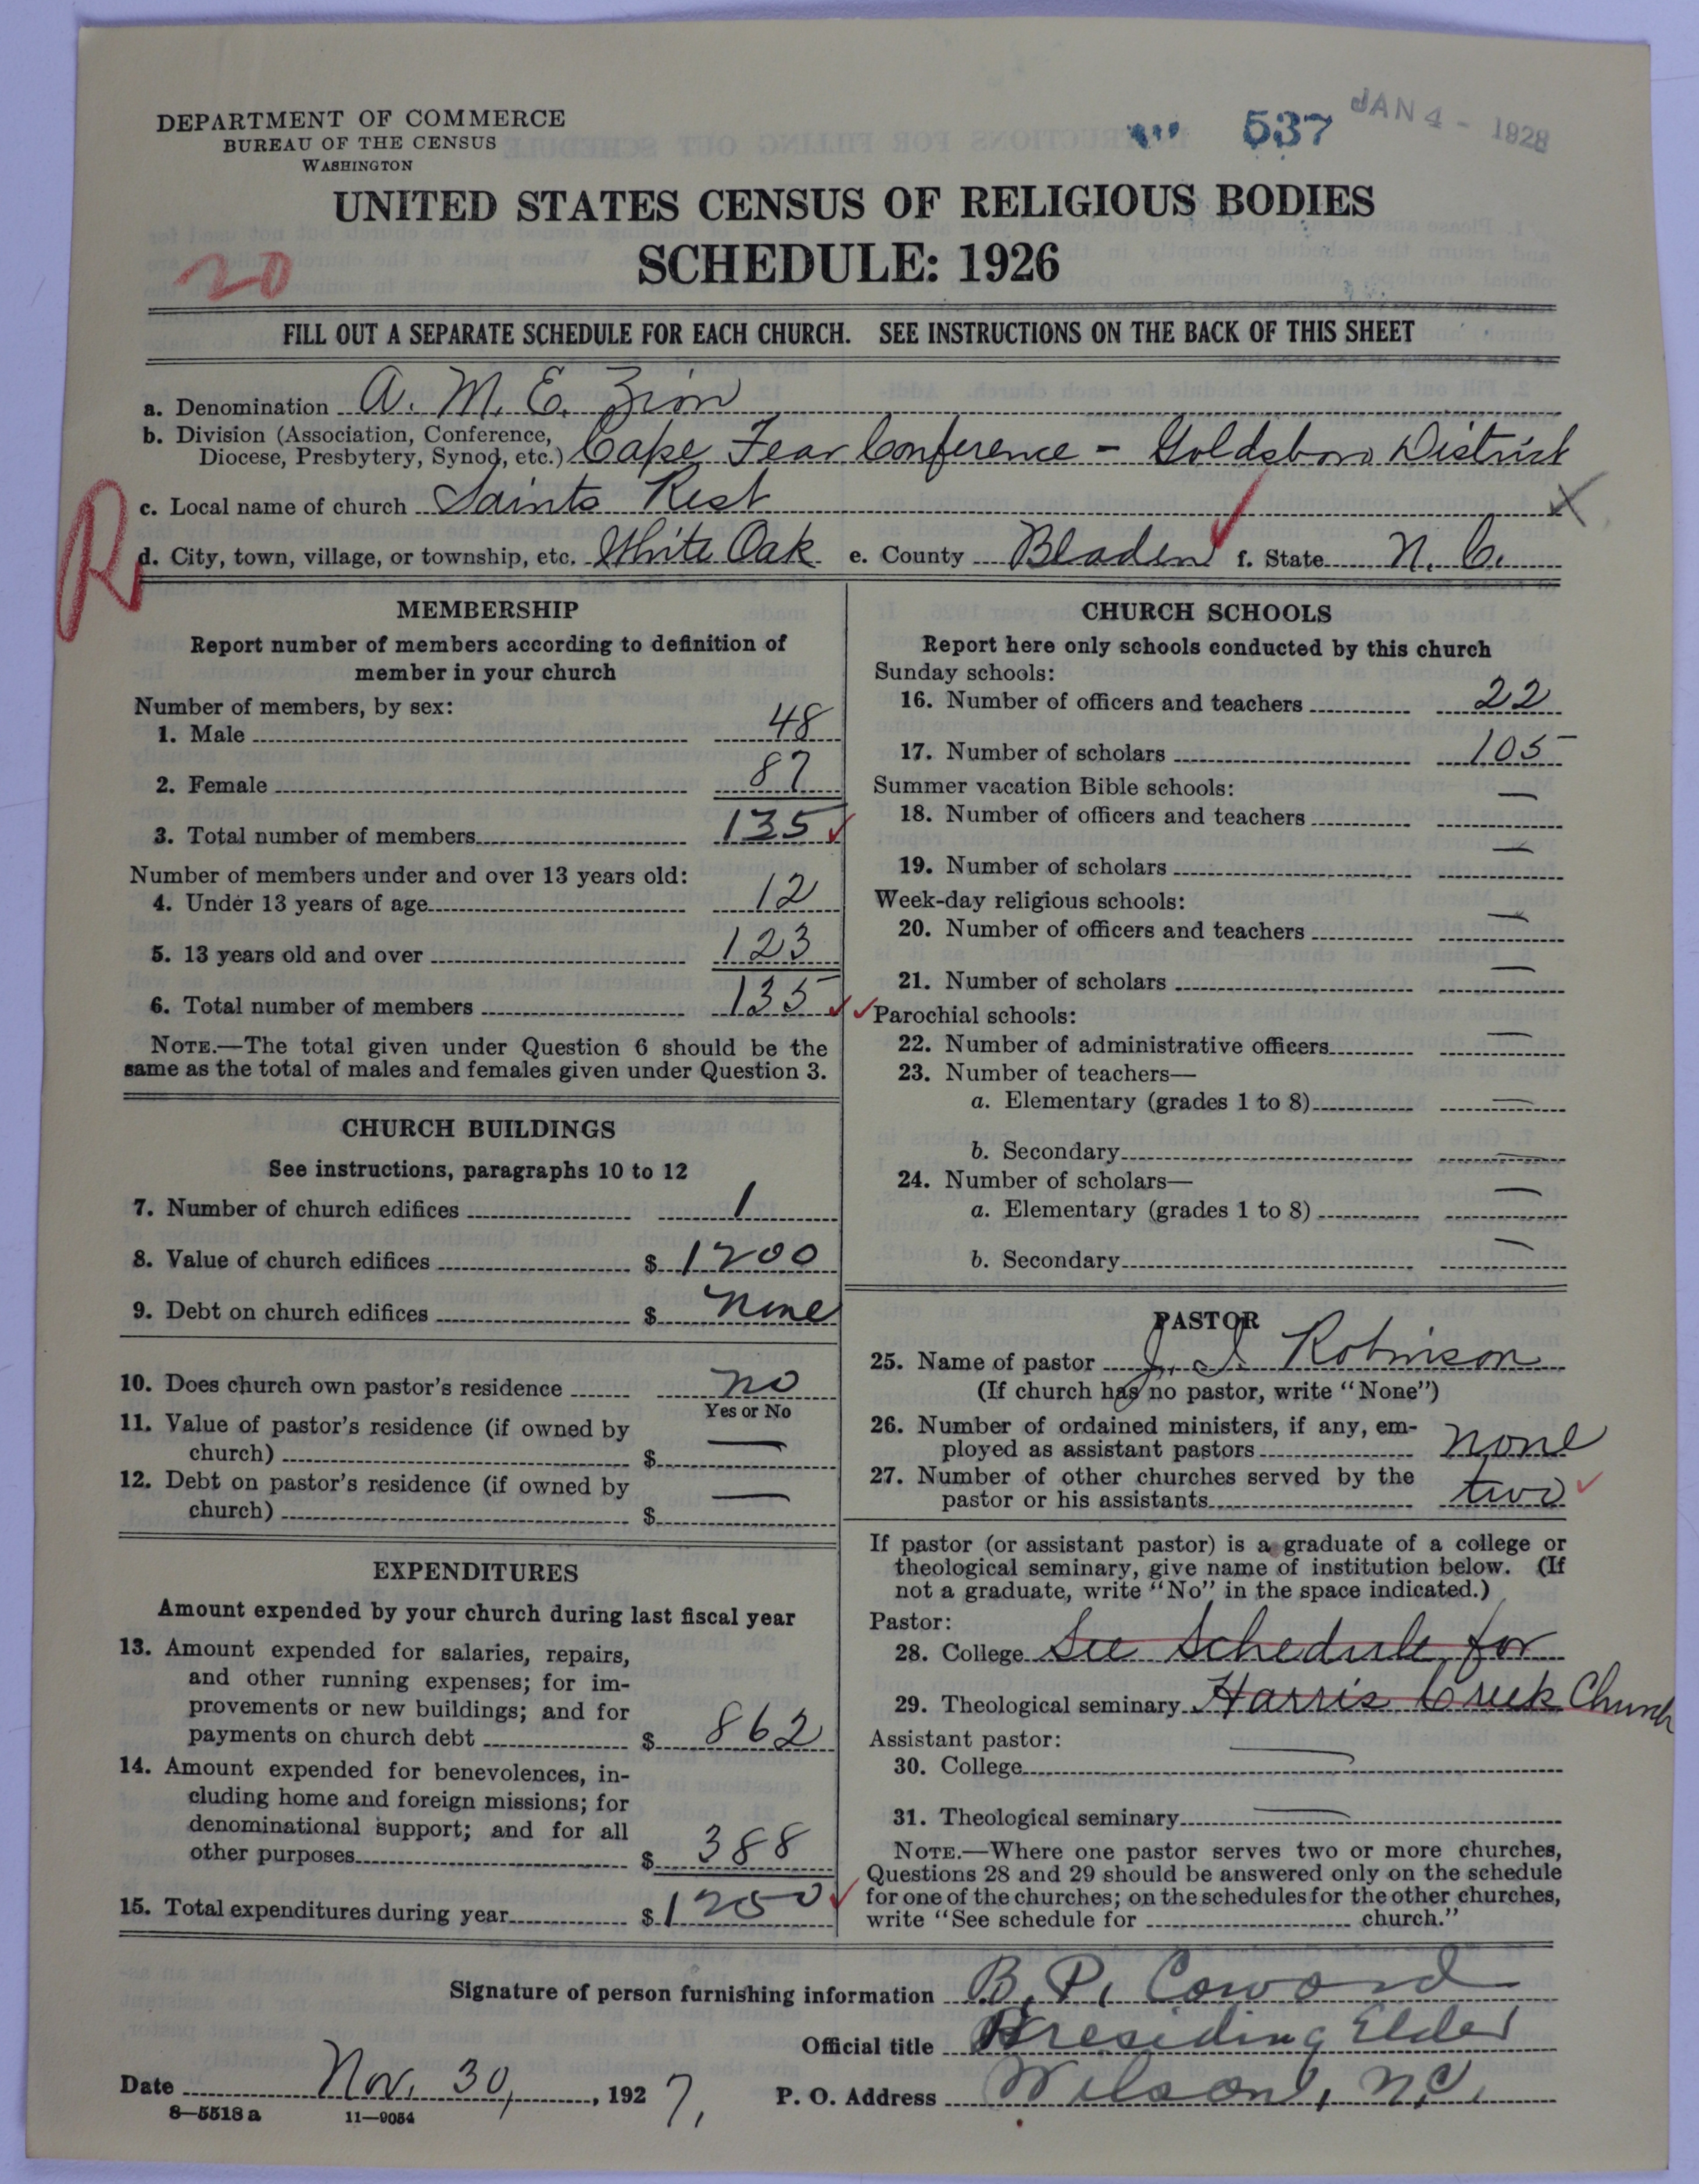 DEPARTMENT OF COMMERCE
BUREAU OF THE CENSUS
WASHINGTON
537
JAN 4 - 1928
UNITED STATES CENSUS OF RELIGIOUS BODIES
SCHEDULE: 1926
20
FILL OUT A SEPARATE SCHEDULE FOR EACH CHURCH. SEE INSTRUCTIONS ON THE BACK OF THIS SHEET
a. Denomination A. M. E. Zion
b. Division (Association, Conference,
Diocese, Presbytery, Synod, etc.) Cape Fear Conference - Goldsboro District
c. Local name of church Saints Rest X
R
d. City, town, village, or township, etc. White Oak e. County Bladen f. State N. C.
MEMBERSHIP
Report number of members according to definition of
member in your church
Number of members, by sex:
1. Male 48
2. Female 87
3. Total number of members 135
Number of members under and over 13 years old:
4. Under 13 years of age 12
5. 13 years old and over 123
6. Total number of members 135
NOTE.—The total given under Question 6 should be the
same as the total of males and females given under Question 3.
CHURCH BUILDINGS
See instructions, paragraphs 10 to 12
7. Number of church edifices 1
8. Value of church edifices $ 1200
9. Debt on church edifices $ none
10. Does church own pastor's residence no
Yes or No
11. Value of pastor's residence (if owned by
church) $ —
12. Debt on pastor's residence (if owned by
church) $ —
EXPENDITURES
Amount expended by your church during last fiscal year
13. Amount expended for salaries, repairs,
and other running expenses; for im-
provements or new buildings; and for
payments on church debt $ 862
14. Amount expended for benevolences, in-
cluding home and foreign missions; for
denominational support; and for all
other purposes $ 388
15. Total expenditures during year $ 1250
CHURCH SCHOOLS
Report here only schools conducted by this church
Sunday schools:
16. Number of officers and teachers 22
17. Number of scholars 105
Summer vacation Bible schools:
18. Number of officers and teachers —
19. Number of scholars —
Week-day religious schools:
20. Number of officers and teachers —
21. Number of scholars —
Parochial schools:
22. Number of administrative officers —
23. Number of teachers—
a. Elementary (grades 1 to 8) —
b. Secondary —
24. Number of scholars—
a. Elementary (grades 1 to 8) —
b. Secondary —
PASTOR
25. Name of pastor J. I. Robinson
(If church has no pastor, write "None")
26. Number of ordained ministers, if any, em-
ployed as assistant pastors none
27. Number of other churches served by the
pastor or his assistants two
If pastor (or assistant pastor) is a graduate of a college or
theological seminary, give name of institution below. (If
not a graduate, write "No" in the space indicated.)
Pastor:
28. College See Schedule for
29. Theological seminary Harris Creek Church
Assistant pastor:
30. College —
31. Theological seminary —
NOTE.—Where one pastor serves two or more churches,
Questions 28 and 29 should be answered only on the schedule
for one of the churches; on the schedules for the other churches,
write "See schedule for church."
Signature of person furnishing information B. P. Coward
Official title Presiding Elder
Date Nov. 30, , 1927, P. O. Address Wilson, N.C.
8—5518 a 11—9054